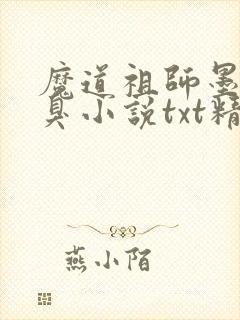 魔道祖師墨
臭小説txt精
燕小陌